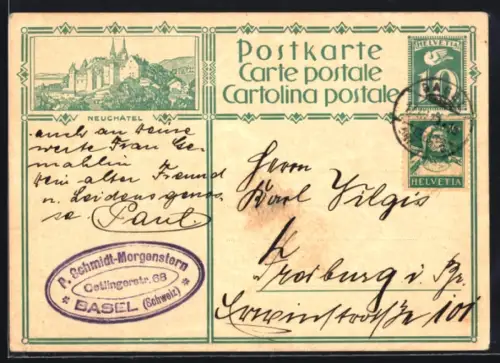 Postkarte
Carte postale
Cartolina postale
HELVETIA
10
NEUCHÂTEL
HELVETIA
auch an deine
werte Frau Ge-
mahlin
dein alter Freund
u. Leidensgenos-
se Paul
P. Schmidt-Morgenstern
Oetlingerstr. 68
BASEL (Schweiz)
Herrn
Karl Vilgis
Freiburg i Br.
Erwinstraße 101